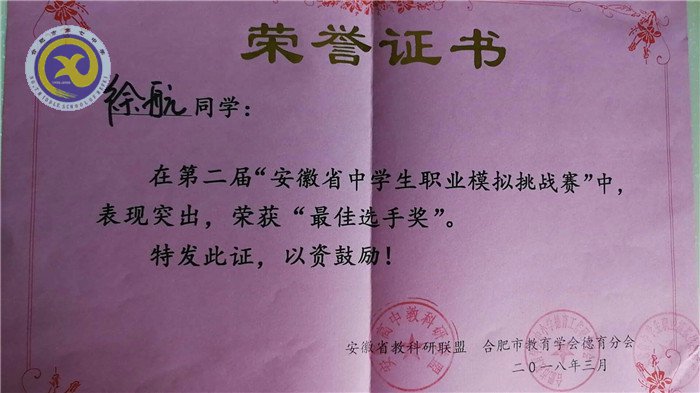 荣誉证书
合肥市第七中学
NO.7 MIDDLE SCHOOL OF HEFEI
徐航同学：
在第二届“安徽省中学生职业模拟挑战赛”中，
表现突出，荣获“最佳选手奖”。
特发此证，以资鼓励！
安徽省教科研联盟 合肥市教育学会德育分会
二〇一八年三月